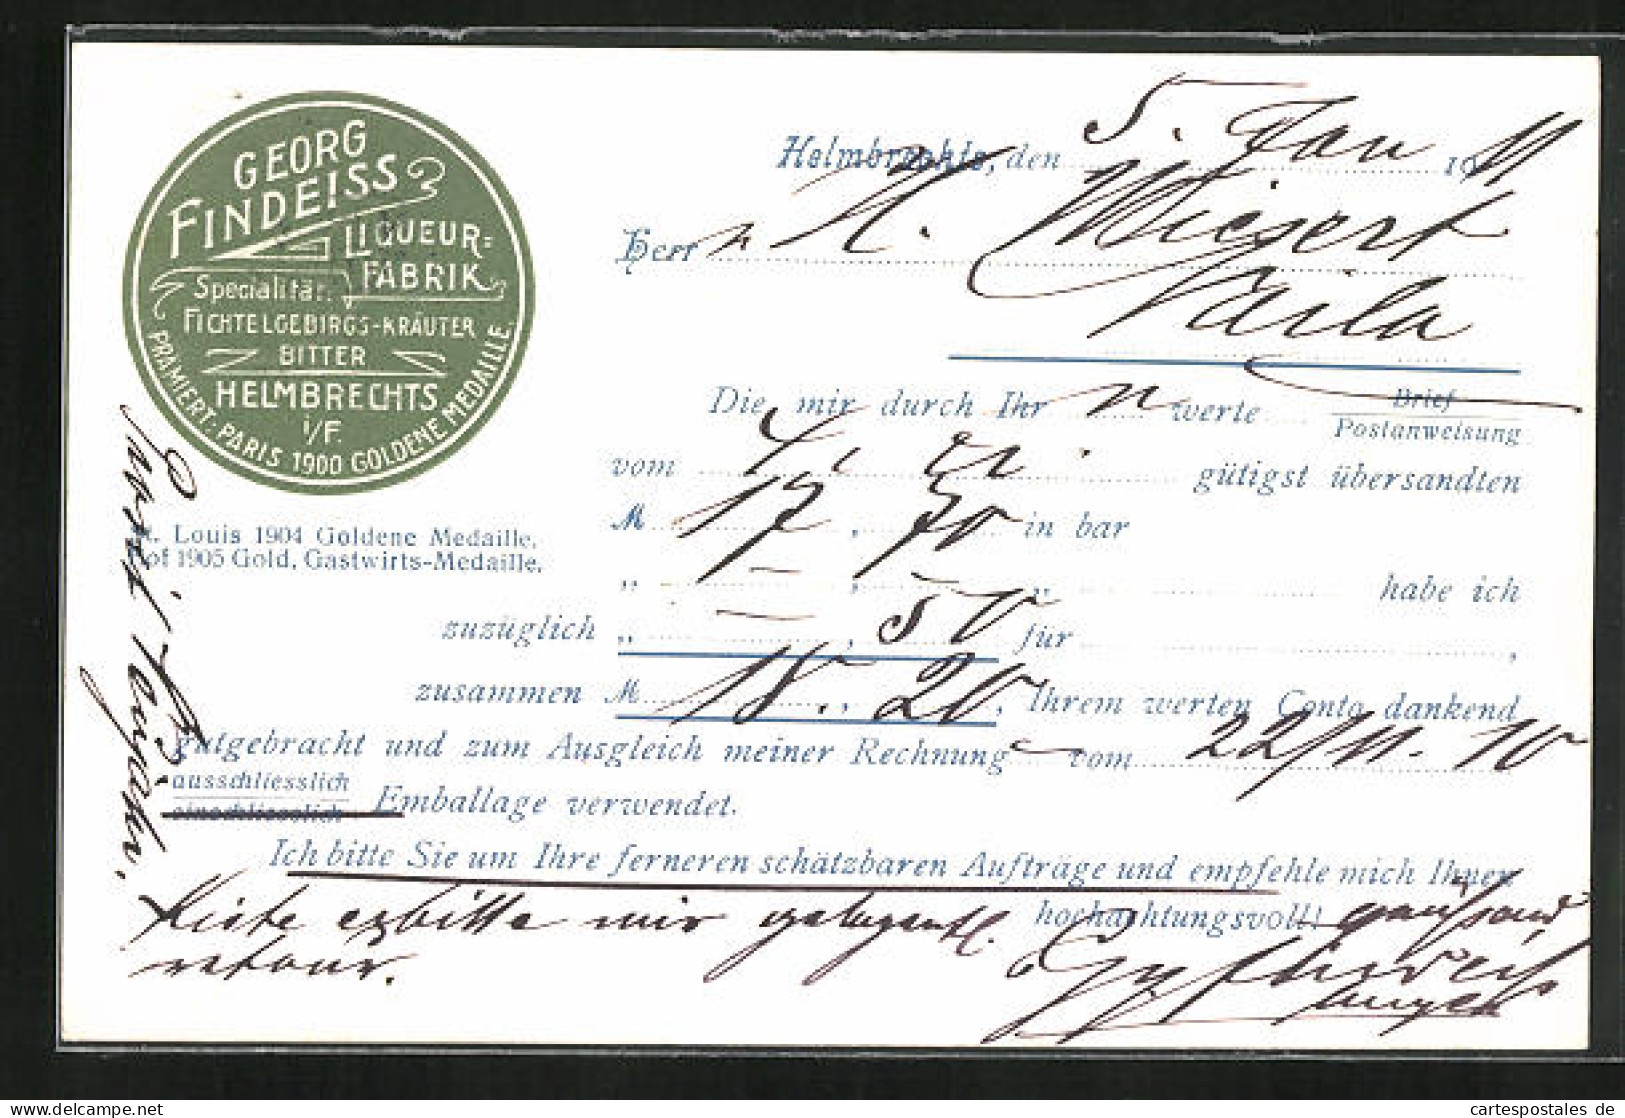 GEORG
FINDEISS
LIQUEUR=
FABRIK
Specialität:
FICHTELGEBIRGS-KRÄUTER
BITTER
HELMBRECHTS
i/F.
PRÄMIERT: PARIS 1900 GOLDENE MEDAILLE.
t. Louis 1904 Goldene Medaille.
of 1905 Gold. Gastwirts-Medaille.
Helmbrechts, den 5. Jan 1911
Herr N. Wiegert
Naila
Die mir durch Ihr werte Brief
Postanweisung
vom gütigst übersandten
M 17, 70 in bar
„ – , – „ habe ich
zuzüglich „ – , 50 für ,
zusammen M 18., 20, Ihrem werten Conto dankend
gutgebracht und zum Ausgleich meiner Rechnung vom 22/11. 10
ausschliesslich
einschliesslich Emballage verwendet.
Ich bitte Sie um Ihre ferneren schätzbaren Aufträge und empfehle mich Ihnen
hochachtungsvoll!
Kiste erbitte mir gelegentl.
retour.
cartespostales de